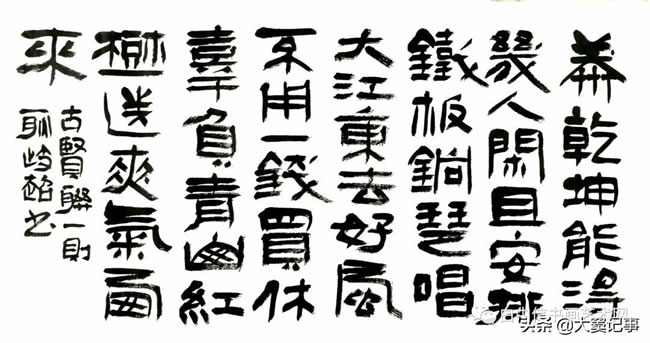 莽乾坤能得
幾人閑且安排
鐵板銅琶唱
大江東去好風
不用一錢買休
辜負青山紅
樹送爽氣西
來
古賢聯一則
耿 书
头条 @大窦记事